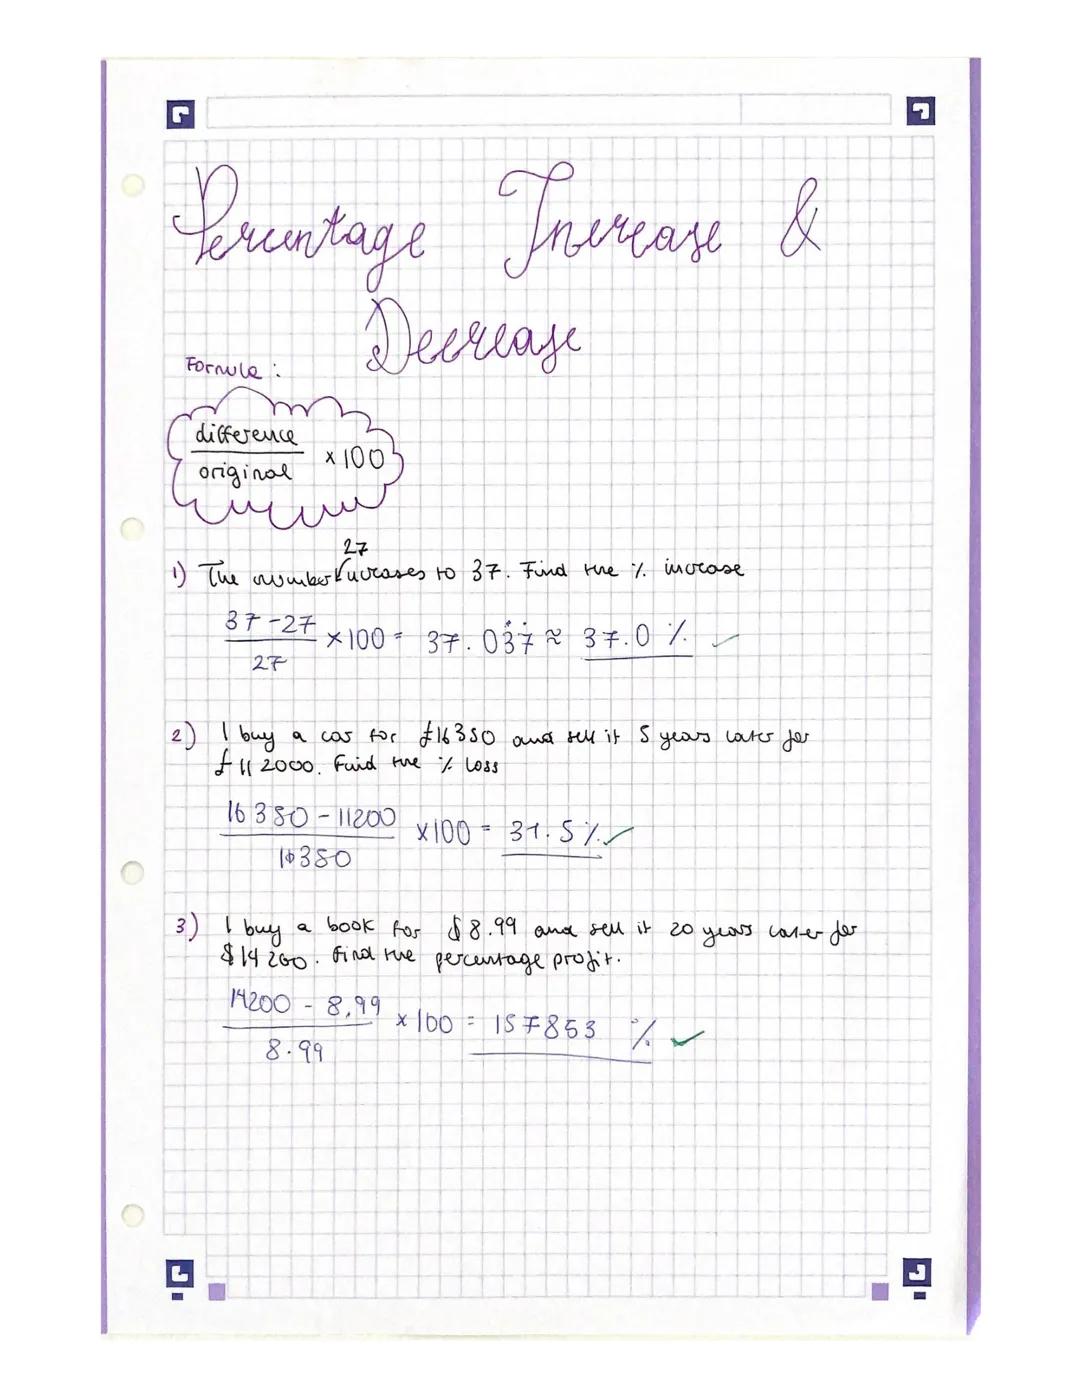 Percentage Increase &
Decrease
Formula :
difference
original
× 100
27
1) The number increases to 37. Find the % increase
37 - 27
27
×100 = 37.037 ≈ 37.0 % ✓
2) I buy a car for £16350 and sell it 5 years later for
£112000. Find the % loss
16350 - 11200
16350
×100 = 31.5 % ✓
3) I buy a book for $8.99 and sell it 20 years later for
$14200. Find the percentage profit.
14200 - 8.99
8.99
× 100 = 157853 % ✓